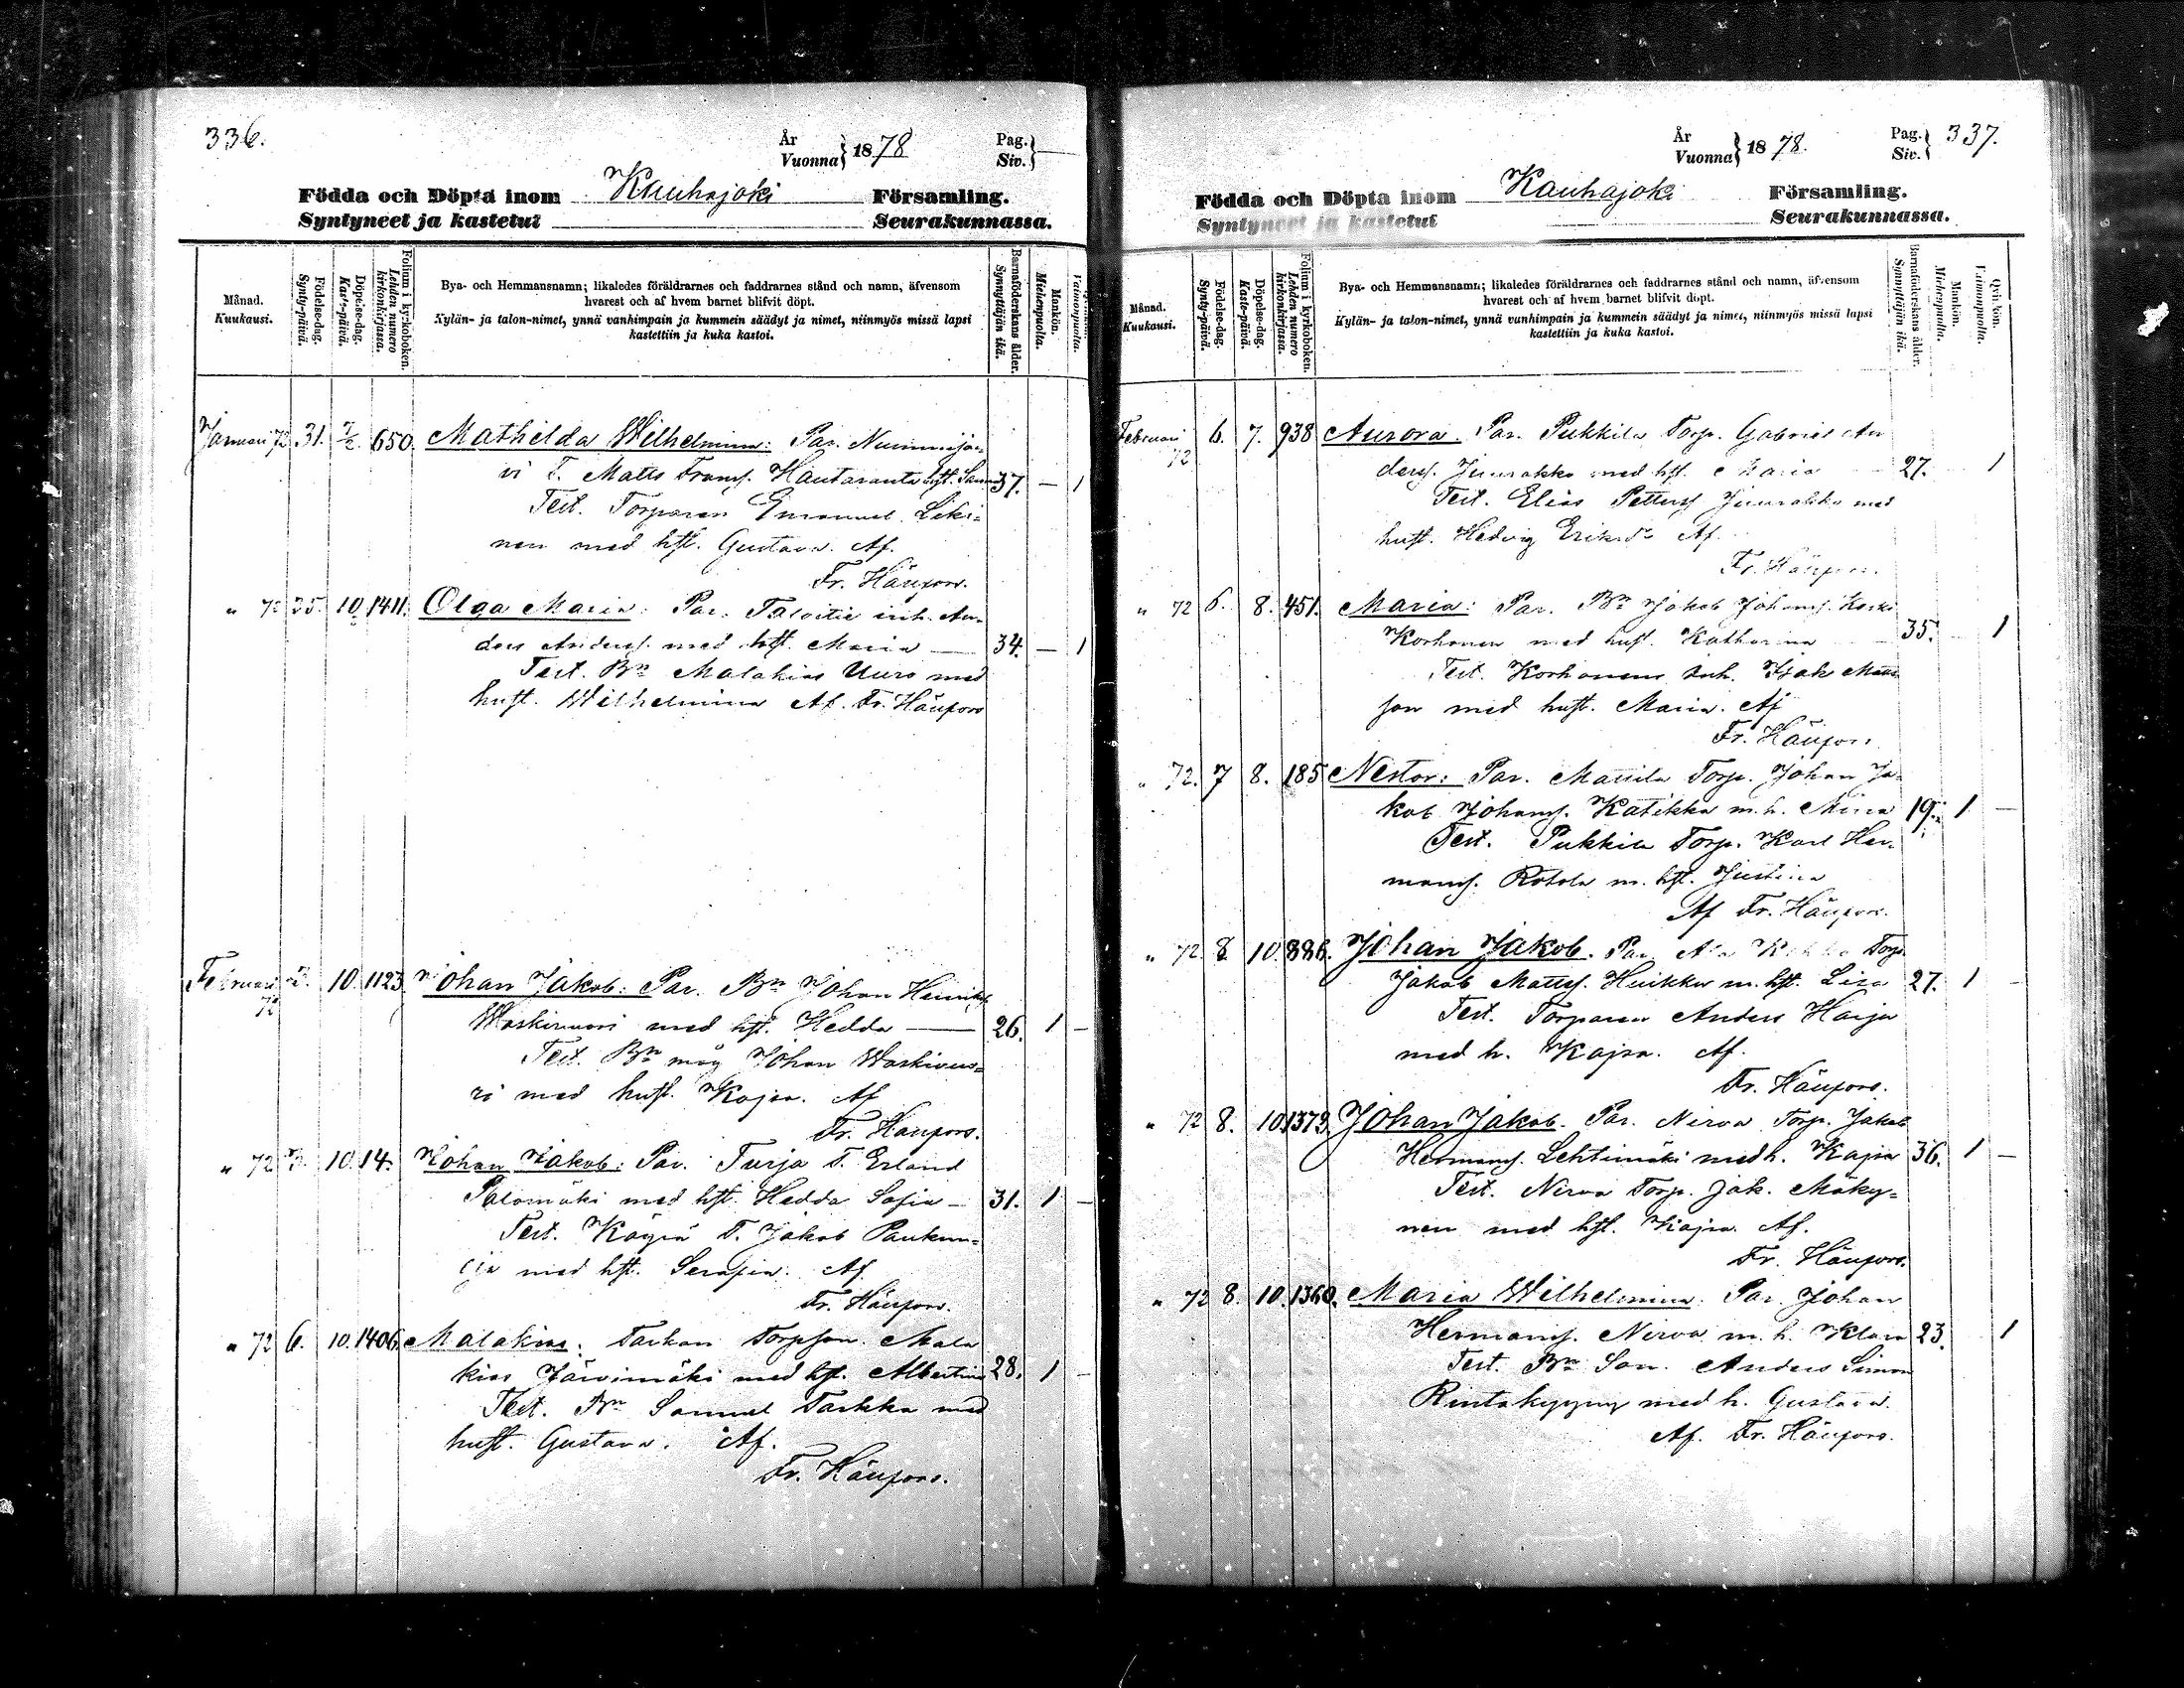 336.
År
Vuonna } 1878
Pag.
Siv. }
Födda och Döpta inom Kauhajoki Församling.
Syntyneet ja kastetut Seurakunnassa.
Månad.
Kuukausi.
Födelse-dag.
Synty-päivä.
Döpelse-dag.
Kaste-päivä.
Folium i kyrkoboken.
Lehden numero
kirkonkirjassa.
Bya- och Hemmansnamn; likaledes föräldrarnes och faddrarnes stånd och namn, äfvensom
hvarest och af hvem barnet blifvit döpt.
Kylän- ja talon-nimet, ynnä vanhimpain ja kummein säädyt ja nimet, niinmyös missä lapsi
kastettiin ja kuka kastoi.
Barnaföderskans ålder.
Synnyttäjän ikä.
Mankön.
Miehenpuolta.
Vaimonpuolta.
Januari 72 31. 7/2 650. Mathilda Wilhelmina: Par. Nummijär-
vi T. Matts Franss. Hautaranta hst. Sanna 37. — 1
Test. Torparen Emanuel Leki-
nen med hst. Gustava. Af.
Fr. Häufors.
" 72 25. 10. 1411. Olga Maria: Par. Taloitie inh. An-
ders Anderss. med hst. Maria — 34. — 1
Test. Bn Malakias Uuro med
hust. Wilhelmina Af. Fr. Häufors
Februari 72 10. 1123 Johan Jakob: Par. Bn Johan Henrikss.
Waskivuori med hst. Hedda — 26. 1 —
Test. Bn måg Johan Waskivuo-
ri med hust. Kajsa. Af
Fr. Häufors.
" 72 10. 14. Johan Jakob: Par. Turja T. Erland
Palomäki med hst. Hedda Sofia — 31. 1 —
Test. Käyrä T. Jakob Paukun-
med hst. Serafia. Af.
Fr. Häufors.
" 72 6. 10. 1406. Malakias: Tarkan Torpson Mala
kias Järvimäki med hst. Albertina 28. 1 —
Test. Bn Samuel Tarkka med
hust. Gustava. Af.
Fr. Häufors.
År
Vuonna } 1878.
Pag.
Siv. } 337.
Födda och Döpta inom Kauhajoki Församling.
Syntyneet ja kastetut Seurakunnassa.
Månad.
Kuukausi.
Födelse-dag.
Synty-päivä.
Döpelse-dag.
Kaste-päivä.
Folium i kyrkoboken.
Lehden numero
kirkonkirjassa.
Bya- och Hemmansnamn; likaledes föräldrarnes och faddrarnes stånd och namn, äfvensom
hvarest och af hvem barnet blifvit döpt.
Kylän- ja talon-nimet, ynnä vanhimpain ja kummein säädyt ja nimet, niinmyös missä lapsi
kastettiin ja kuka kastoi.
Barnaföderskans ålder.
Synnyttäjän ikä.
Mankön.
Miehenpuolta.
Qvinkön.
Vaimonpuolta.
Februari 72 6. 7. 938 Aurora. Par. Pukkila Torp. Gabriel An
derss. Juurakko med hst. Maria 27. 1
Test. Elias Petterss Juurakko med
hust. Hedvig Eriksdr Af.
Fr. Häufors.
" 72 6. 8. 451. Maria: Par. Bn Jakob Johanss. Keski
Korhonen med hust. Katharina 35. 1
Test. Korhonens inh. Isak Matts
son med hust. Maria. Af
Fr. Häufors
" 72. 7 8. 185 Nestor: Par. Mattila Torp. Johan Ja-
kob Johanss. Katikka m. h. Mina 19. 1 —
Test. Pukkila Torp. Karl Her-
manss. Rotola m. hst. Justina
Af Fr. Häufors.
" 72 8. 10. 886. Johan Jakob. Par. Ala Torp
Jakob Mattss. Huikku m. hst. Lisa 27. 1 —
Test. Torparen Anders Harju
med h. Kajsa. Af.
Fr. Häufors.
" 72 8. 10. 1379. Johan Jakob. Par. Nirva Torp. Jakob
Hermanss. Lehtimäki med h. Kajsa 36. 1 —
Test. Nirva Torp. Jak. Mäky-
nen med hst. Kajsa. Af.
Fr. Häufors.
" 72 8. 10. 1360. Maria Wilhelmina. Par. Johan
Hermanss. Nirva m. h. Klara 23. 1
Test. Bn Son. Anders Simon
Rintakyyny med h. Gustava.
Af. Fr. Häufors.